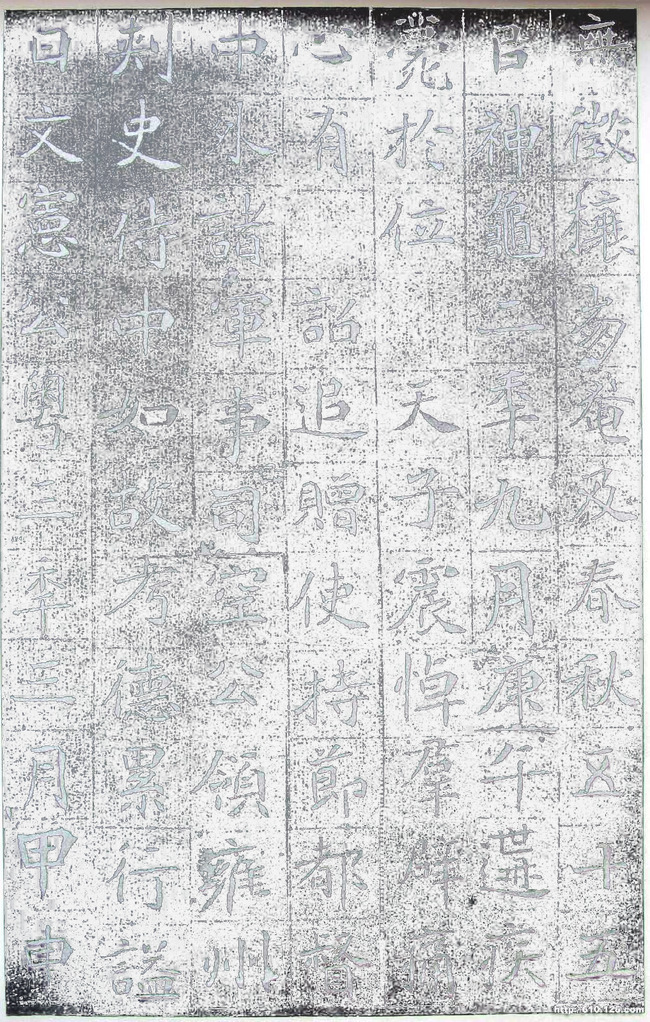 無徵奄及春秋五十五
㠯神龜二年九月庚午遘疾
薨於位 天子震悼羣辟痛
心有 詔追贈使持節都督
中外諸軍事司空公領雍州
刺史侍中如故考德累行諡
曰文憲公粵三年三月甲申
http://610.126.com